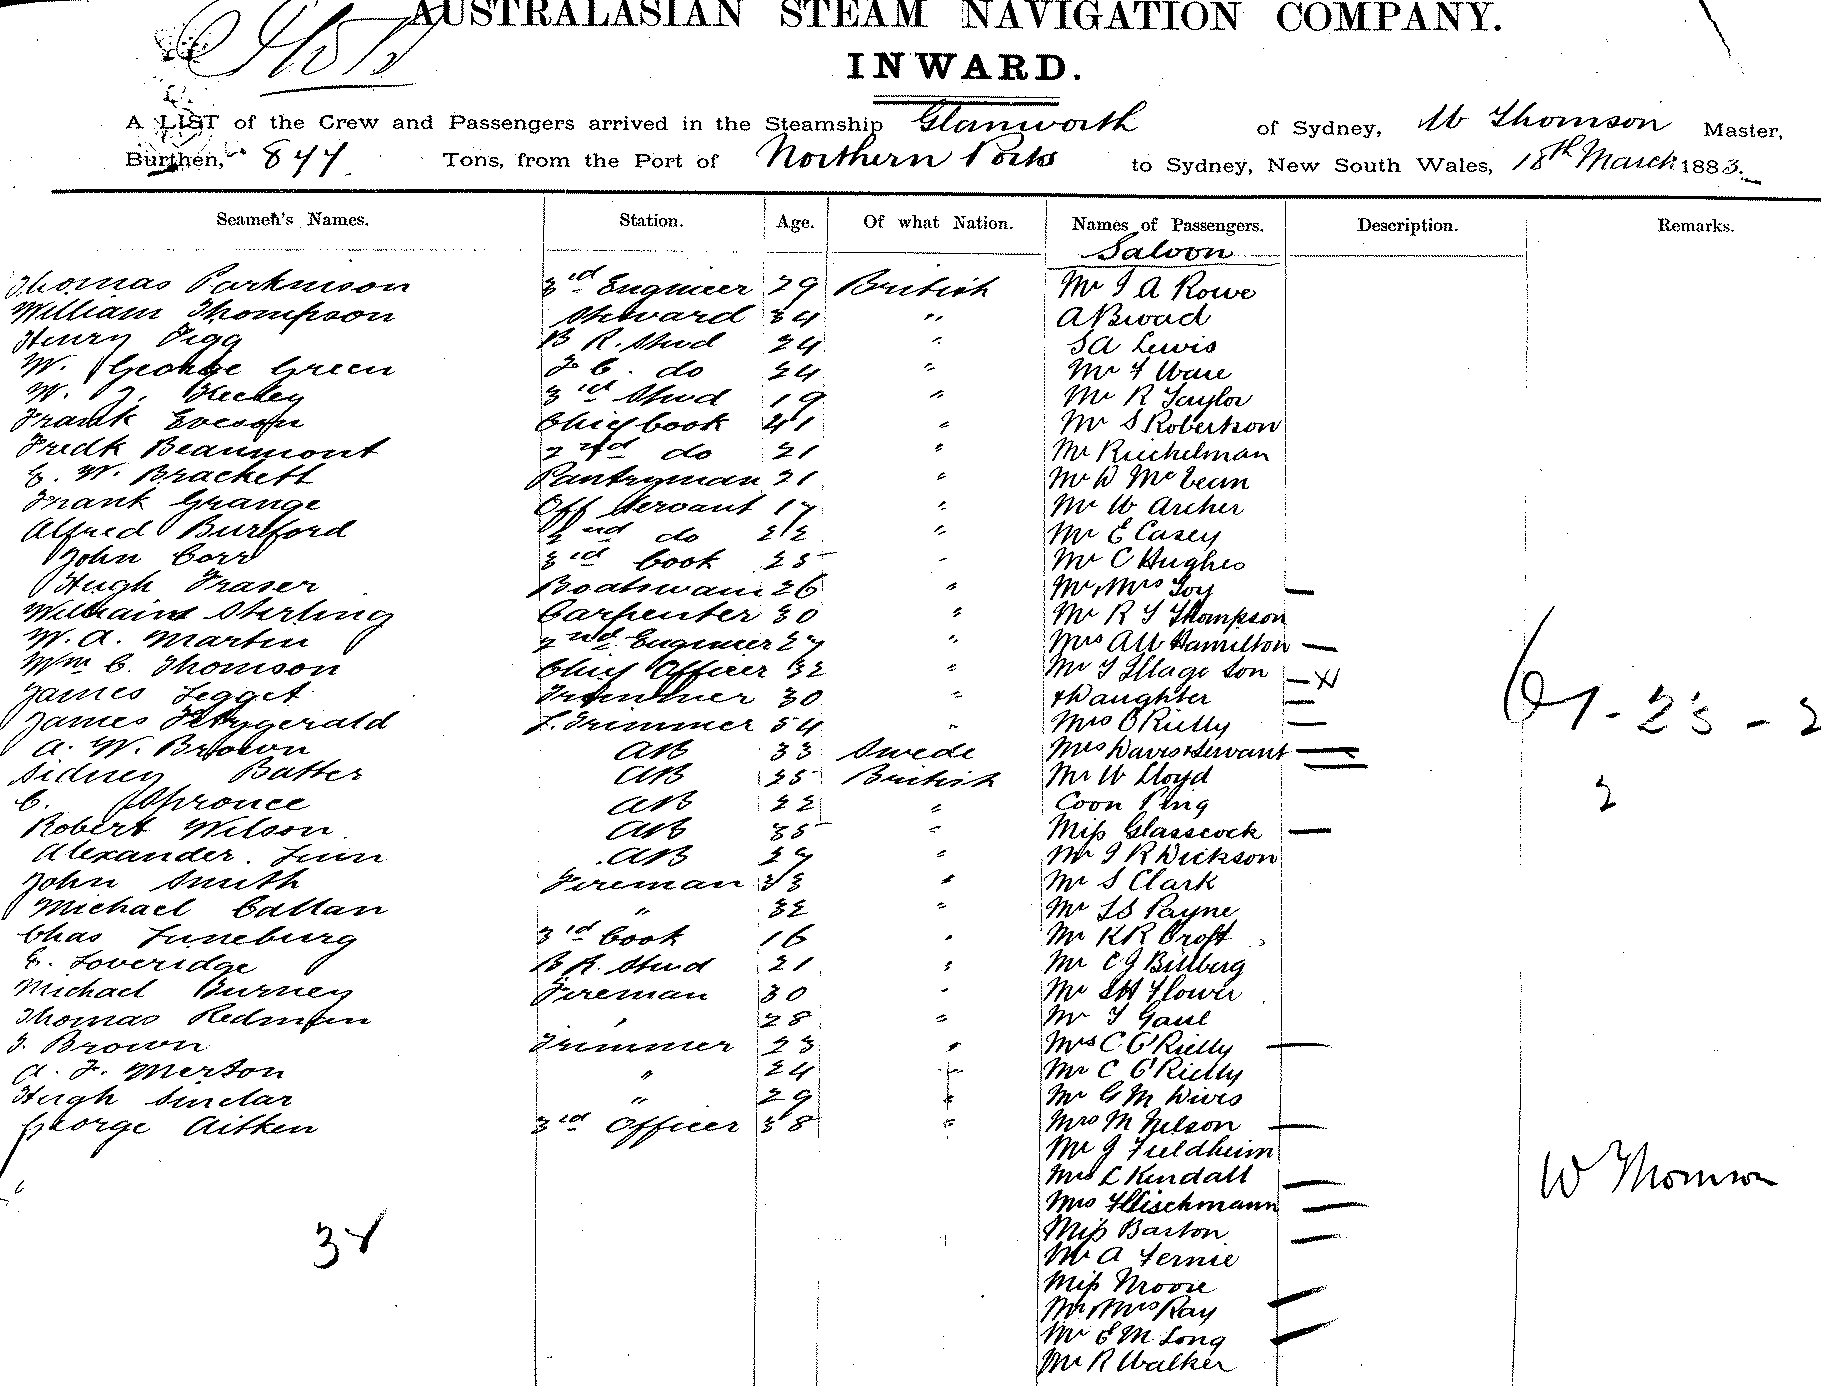 AUSTRALASIAN STEAM NAVIGATION COMPANY.
INWARD.
A LIST of the Crew and Passengers arrived in the Steamship Glanworth of Sydney, W Thomson Master,
Burthen, 877 Tons, from the Port of Northern Ports to Sydney, New South Wales, 18th March 1883.
Seamen's Names. Station. Age. Of what Nation. Names of Passengers. Description. Remarks.
Saloon
Thomas Parkinson 3rd Engineer 29 British Mr J A Rowe
William Thompson Steward 34 " A Broad
Henry Figg B R. Stud 24 " S A Lewis
W. George Green F. C. do 24 " Mr F Ware
W. J. Heeley 3rd Stud 19 " Mr R Taylor
Frank Eveson Chief Cook 41 " Mr S Robertson
Fredk Beaumont 2nd do 21 " Mr Riechelman
E. W. Brackett Pantryman 21 " Mr D McLean
Frank Grange Off Servant 17 " Mr W Archer
Alfred Burford 2nd do 22 " Mr E Casey
John Corr 3rd Cook 25 " Mr C Hughes
Hugh Fraser Boatswain 26 " Mr Mrs Foy
William Stirling Carpenter 30 " Mr R T Thompson
W. A. Martin 2nd Engineer 27 " Mrs A W Hamilton
Wm C. Thomson Chief Officer 32 " Mr T Illage Son
James Legget Trimmer 30 " & Daughter
James Fitzgerald L. Trimmer 54 " Mrs O'Rielly
A. W. Brown AB 33 Swede Mrs Davis & Servant
Sidney Batter AB 25 British Mr W Lloyd
C. Spronce AB 22 " Coon Ping
Robert Wilson AB 35 " Miss Glasscock
Alexander Lunn AB 27 " Mr J R Dickson
John Smith Fireman 33 " Mr S Clark
Michael Callan " 32 " Mr L S Payne
Chas Luneburg 3rd Cook 16 " Mr K R Croft
E. Loveridge B R. Stud 21 " Mr C J Billberg
Michael Burney Fireman 30 " Mr S H Flower
Thomas Redman " 28 " Mr T Gaul
J. Brown Trimmer 23 " Mrs C O'Rielly
A. F. Merton " 24 " Mr C O'Rielly
Hugh Sinclar " 29 " Mr G M Dives
George Aitken 3rd Officer 38 " Mrs M Nelson
Mr J Fieldheim
Mrs L Kendall
Mrs Fleischmann
Miss Barton
Mr A Fernie
Miss Moore
Mr Mrs Ray
Mr E M Long
Mr R Walker
W Thomson